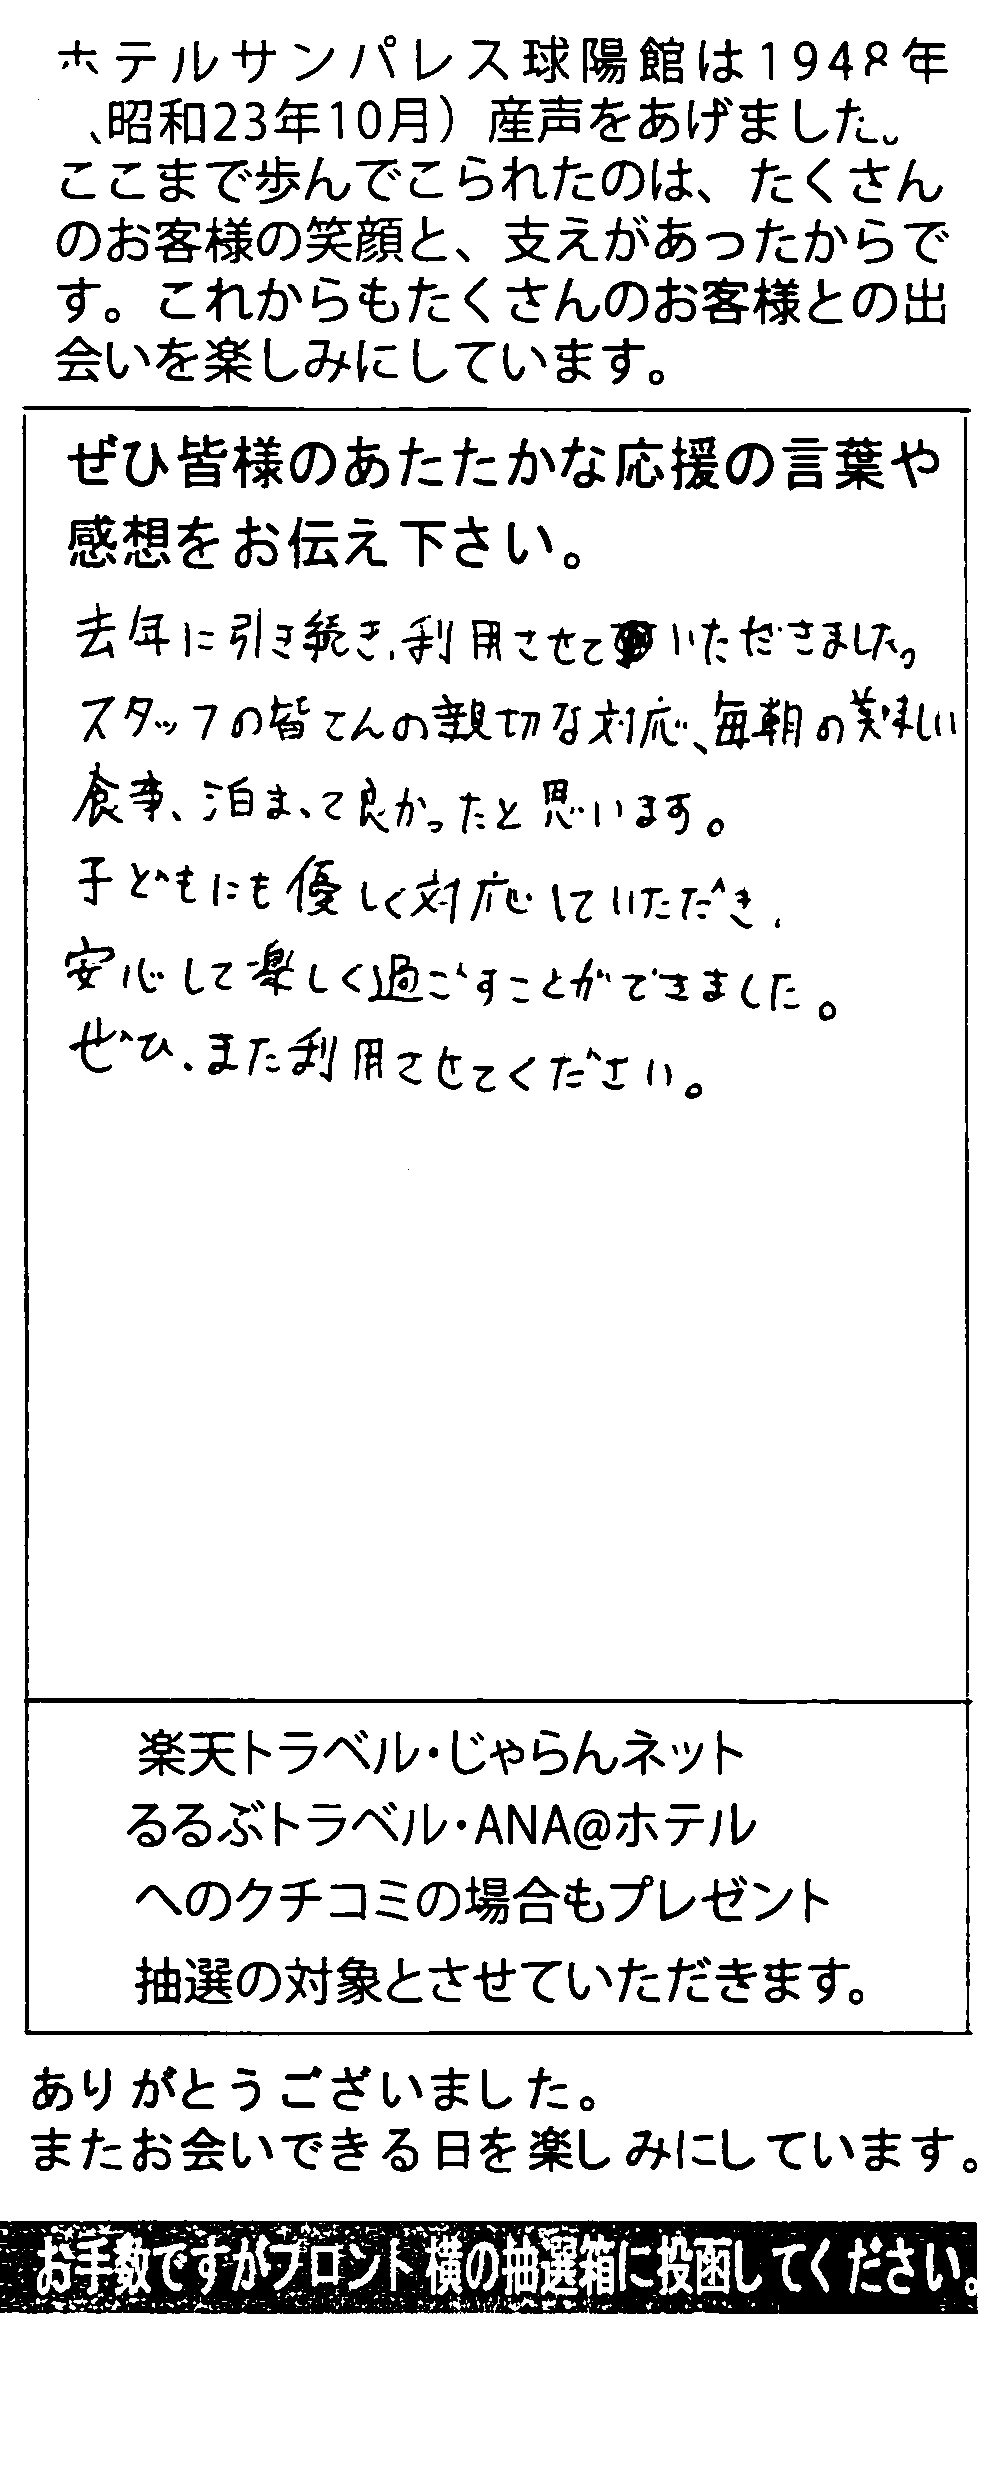 ホテルサンパレス球陽館は1948年
(昭和23年10月）産声をあげました。
ここまで歩んでこられたのは、たくさん
のお客様の笑顔と、支えがあったからで
す。これからもたくさんのお客様との出
会いを楽しみにしています。
ぜひ皆様のあたたかな応援の言葉や
感想をお伝え下さい。
去年に引き続き、利用させていただきました。
スタッフの皆さんの親切な対応、毎朝の美味しい
食事、泊まって良かったと思います。
子どもにも優しく対応していただき、
安心して楽しく過ごすことができました。
ぜひ、また利用させてください。
楽天トラベル・じゃらんネット
るるぶトラベル・ANA@ホテル
へのクチコミの場合もプレゼント
抽選の対象とさせていただきます。
ありがとうございました。
またお会いできる日を楽しみにしています。
お手数ですがフロント横の抽選箱に投函してください。